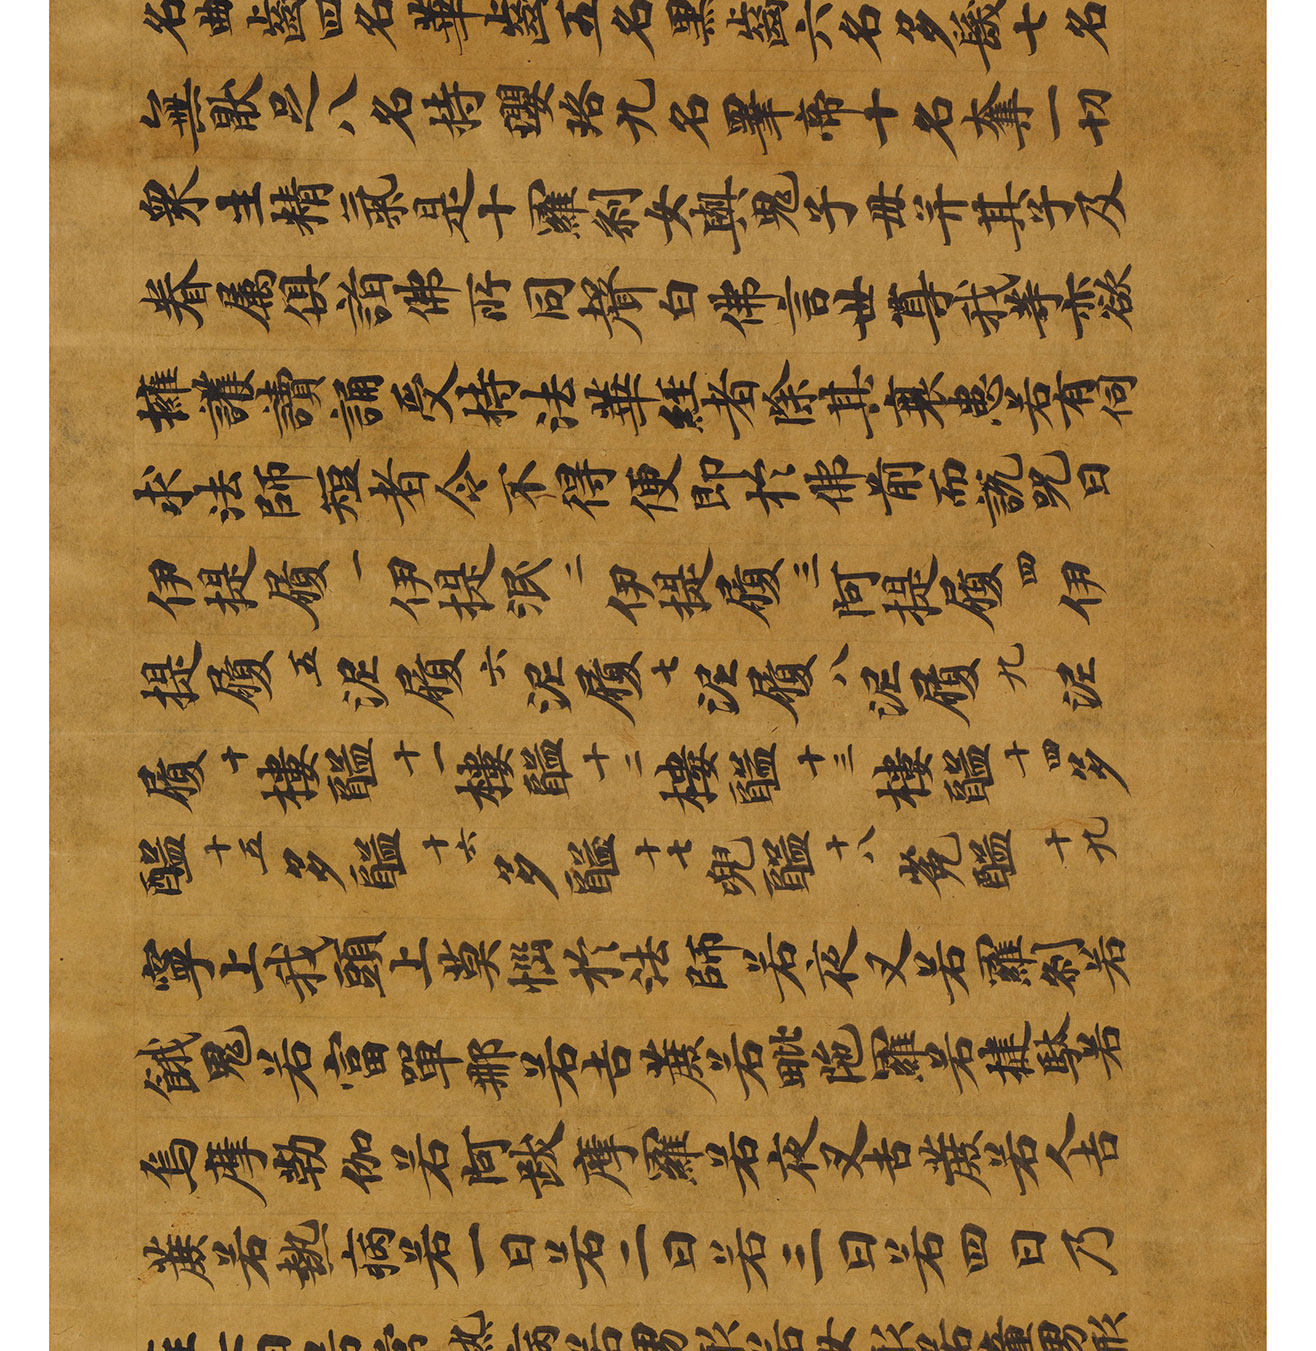 名曲齒四名華齒五名黑齒六名多髮七名
無厭足八名持瓔珞九名睪帝十名奪一切
眾生精氣是十羅刹女與鬼子母并其子及
眷屬俱詣佛所同聲白佛言世尊我等亦欲
擁護讀誦受持法華經者除其衰患若有伺
求法師短者令不得便即於佛前而說呪曰
伊提履一伊提泯二伊提履三阿提履四伊
提履五泥履六泥履七泥履八泥履九泥
履十樓醯十一樓醯十二樓醯十三樓醯十四多
醯十五多醯十六多醯十七兜醯十八㝹醯十九
寧上我頭上莫惱於法師若夜叉若羅刹若
餓鬼若富單那若吉蔗若毗陀羅若揵馱若
烏摩勒伽若阿跋摩羅若夜叉吉蔗若人吉
蔗若熱病若一日若二日若三日若四日乃
至七日若常熱病若男形若女形若童男形